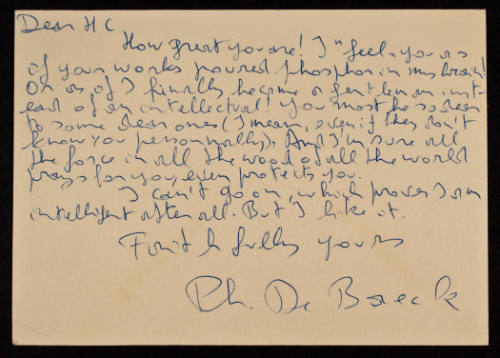 Dear H C
How great you are! I "feel yours
if your works poured phosphor in my brain!
Or as if I finally become a gentleman inst-
ead of an intellectual! You must be so dear
to some dear ones (I mean, even if they don't
know you personnally). And I'm sure all
the force in all the wood of all the world
prays for you, even protects you.
I can't go on, which proves I am
intelligent after all. But I like it.
Faithfully yours
Ph. De Boeck